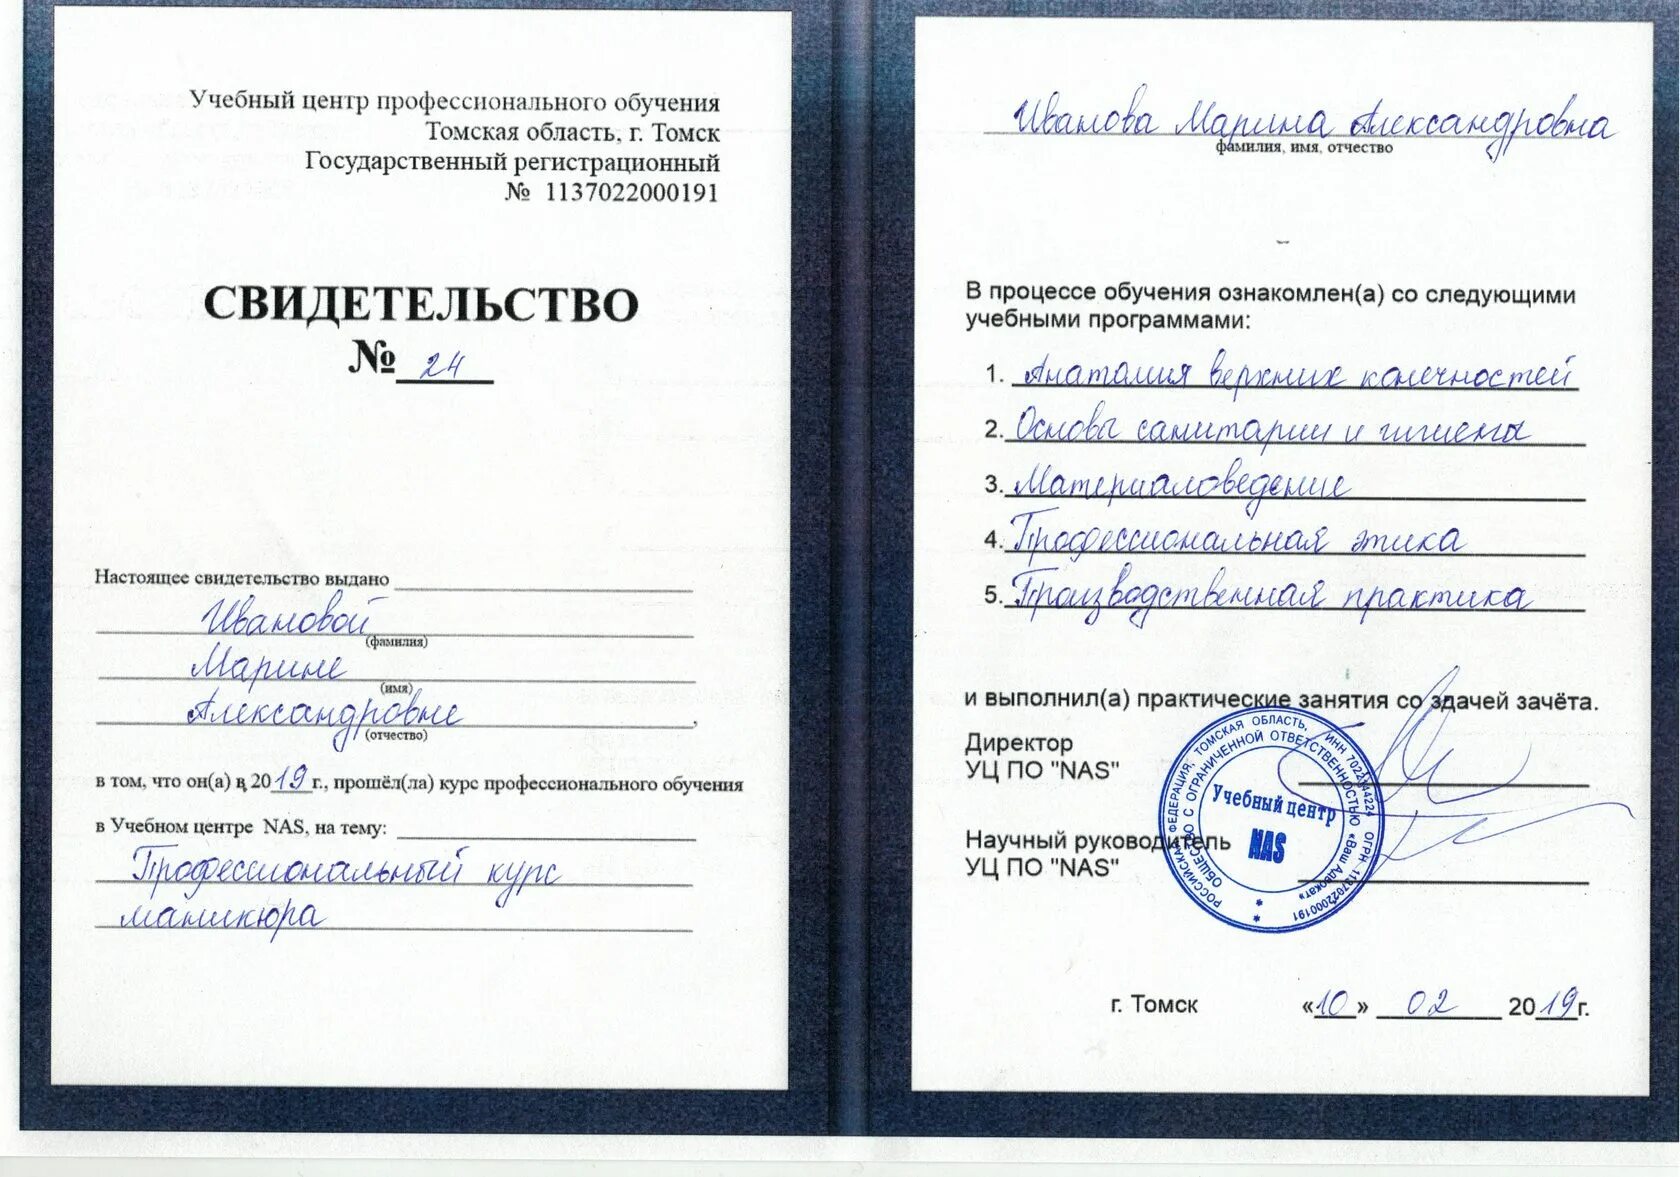 Учебный центр профессионального обучения
Томская область, г. Томск
Государственный регистрационный
№ 1137022000191
СВИДЕТЕЛЬСТВО
№ 24
Настоящее свидетельство выдано
Ивановой
(фамилия)
Марине
(имя)
Александровне
(отчество)
,
в том, что он(а) в 2019 г., прошёл(ла) курс профессионального обучения
в Учебном центре NAS, на тему:
Профессиональный курс
маникюра
Иванова Марина Александровна
фамилия, имя, отчество
В процессе обучения ознакомлен(а) со следующими
учебными программами:
1. Анатомия верхних конечностей
2. Основы санитарии и гигиены
3. Материаловедение
4. Профессиональная этика
5. Производственная практика
и выполнил(а) практические занятия со здачей зачёта.
Директор
УЦ ПО "NAS"
Научный руководитель
УЦ ПО "NAS"
РОССИЙСКАЯ ФЕДЕРАЦИЯ, ТОМСКАЯ ОБЛАСТЬ, ИНН ОГРН 1137022000191
ОБЩЕСТВО С ОГРАНИЧЕННОЙ ОТВЕТСТВЕННОСТЬЮ «Ваш Адвокат»
Учебный центр
NAS
г. Томск «10» 02 2019г.